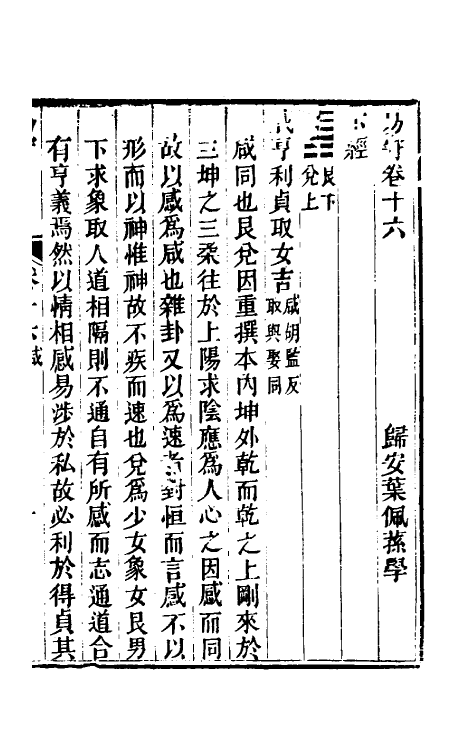 易守卷十六　歸安葉佩蓀學
下經
艮下
兌上
咸亨利貞取女吉咸胡監反取與娶同
咸同也艮兌因重撰本內坤外乾而乾之上剛來於
三坤之三柔往於上陽求陰應為人心之因感而同
故以感為咸也雜卦又以為速者對恒而言感不以
形而以神惟神故不疾而速也兌為少女象女艮男
下求象取人道相隔則不通自有所感而志通道合
有亨義焉然以情相感易涉於私故必利於得貞其
卷十六咸